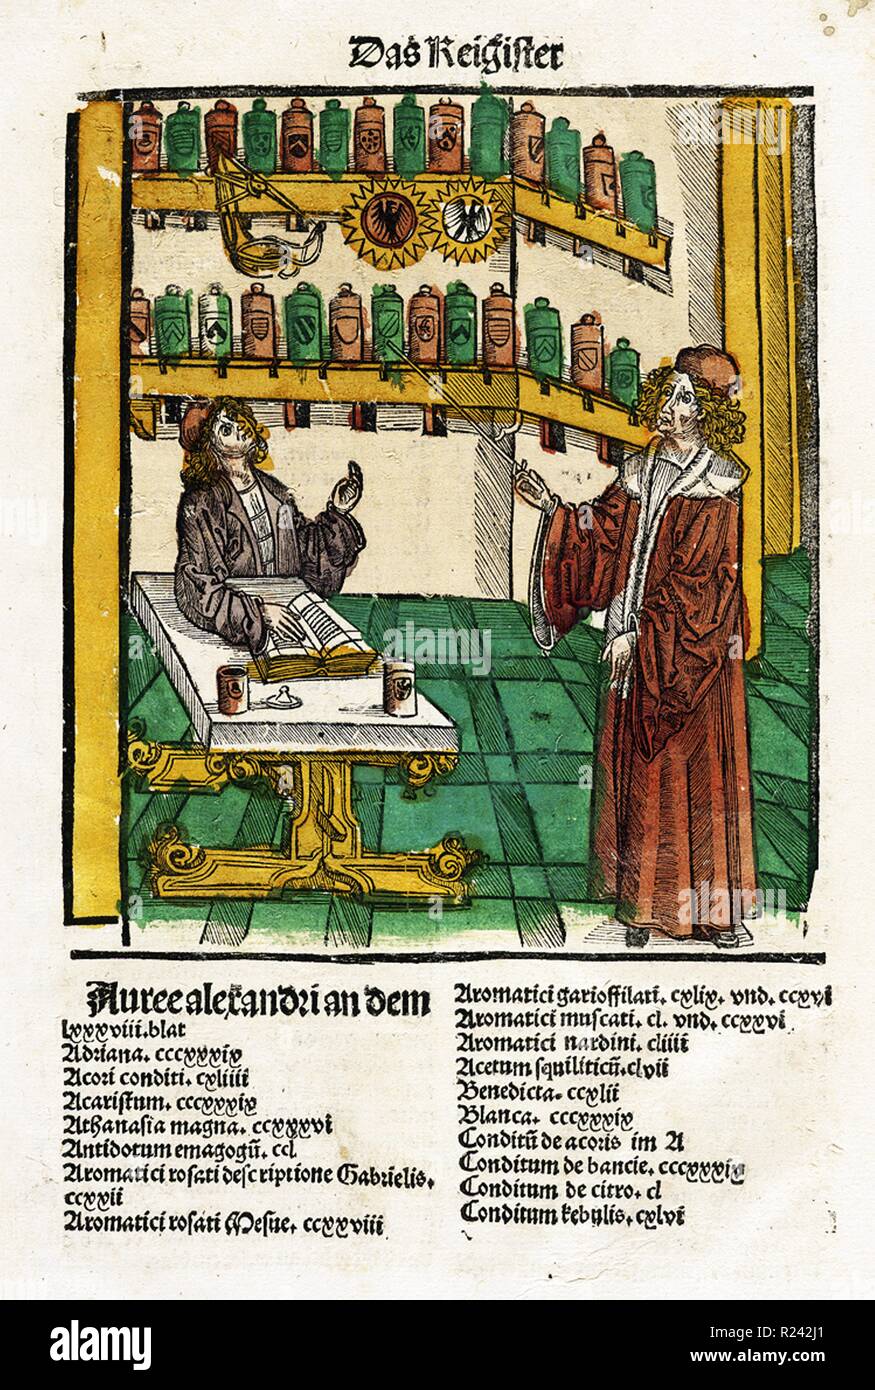 Das Reigister
Auree alexandri an dem
lxxxviii. blat
Adriana. cccxxxix
Acori conditi. cxliiii
Acaristum. cccxxxix
Athanasia magna. ccxxxvi
Antidotum emagogū. ccl
Aromatici rosati descriptione Gabrielis.
ccxxii
Aromatici rosati Mesue. ccxxviii
Aromatici gariofilati. cxlix. vnd. ccxvi
Aromatici muscati. cl. vnd. ccxxvi
Aromatici nardini. cliiii
Acetum squiliticū. clvii
Benedicta. ccxlii
Blanca. cccxxxix
Conditū de acoris im A
Conditum de bancie. cccxxxix
Conditum de citro. cl
Conditum kebulis. cxlvi
alamy
alamy stock photo
R242J1
www.alamy.com